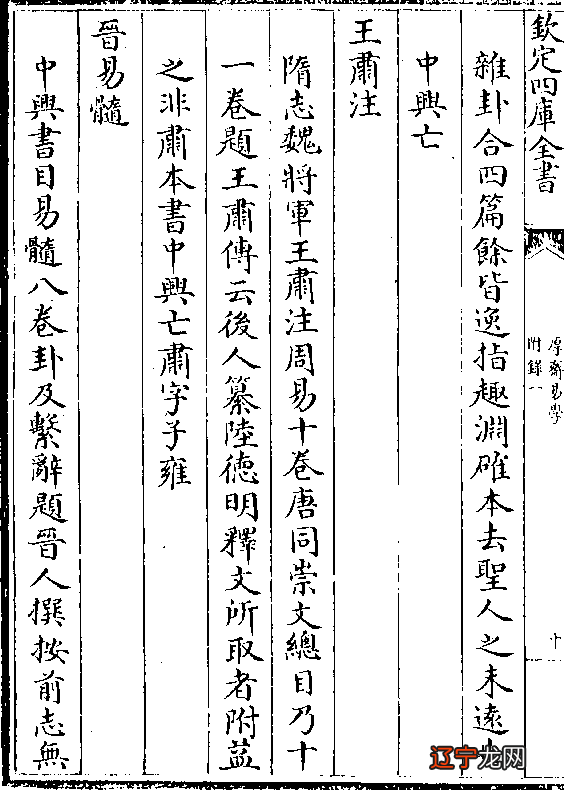 欽定四庫全書
厚齋易學
附錄一
十
雜卦合四篇餘皆逸指趣淵確本去聖人之未遠
中興亡
王肅注
隋志魏將軍王肅注周易十卷唐同崇文總目乃十
一卷題王肅傳云後人纂陸徳明釋文所取者附益
之非肅本書中興亡肅字子雍
晉易髓
中興書目易髓八卷卦及繫辭題晉人撰按前志無
辽宁龙网